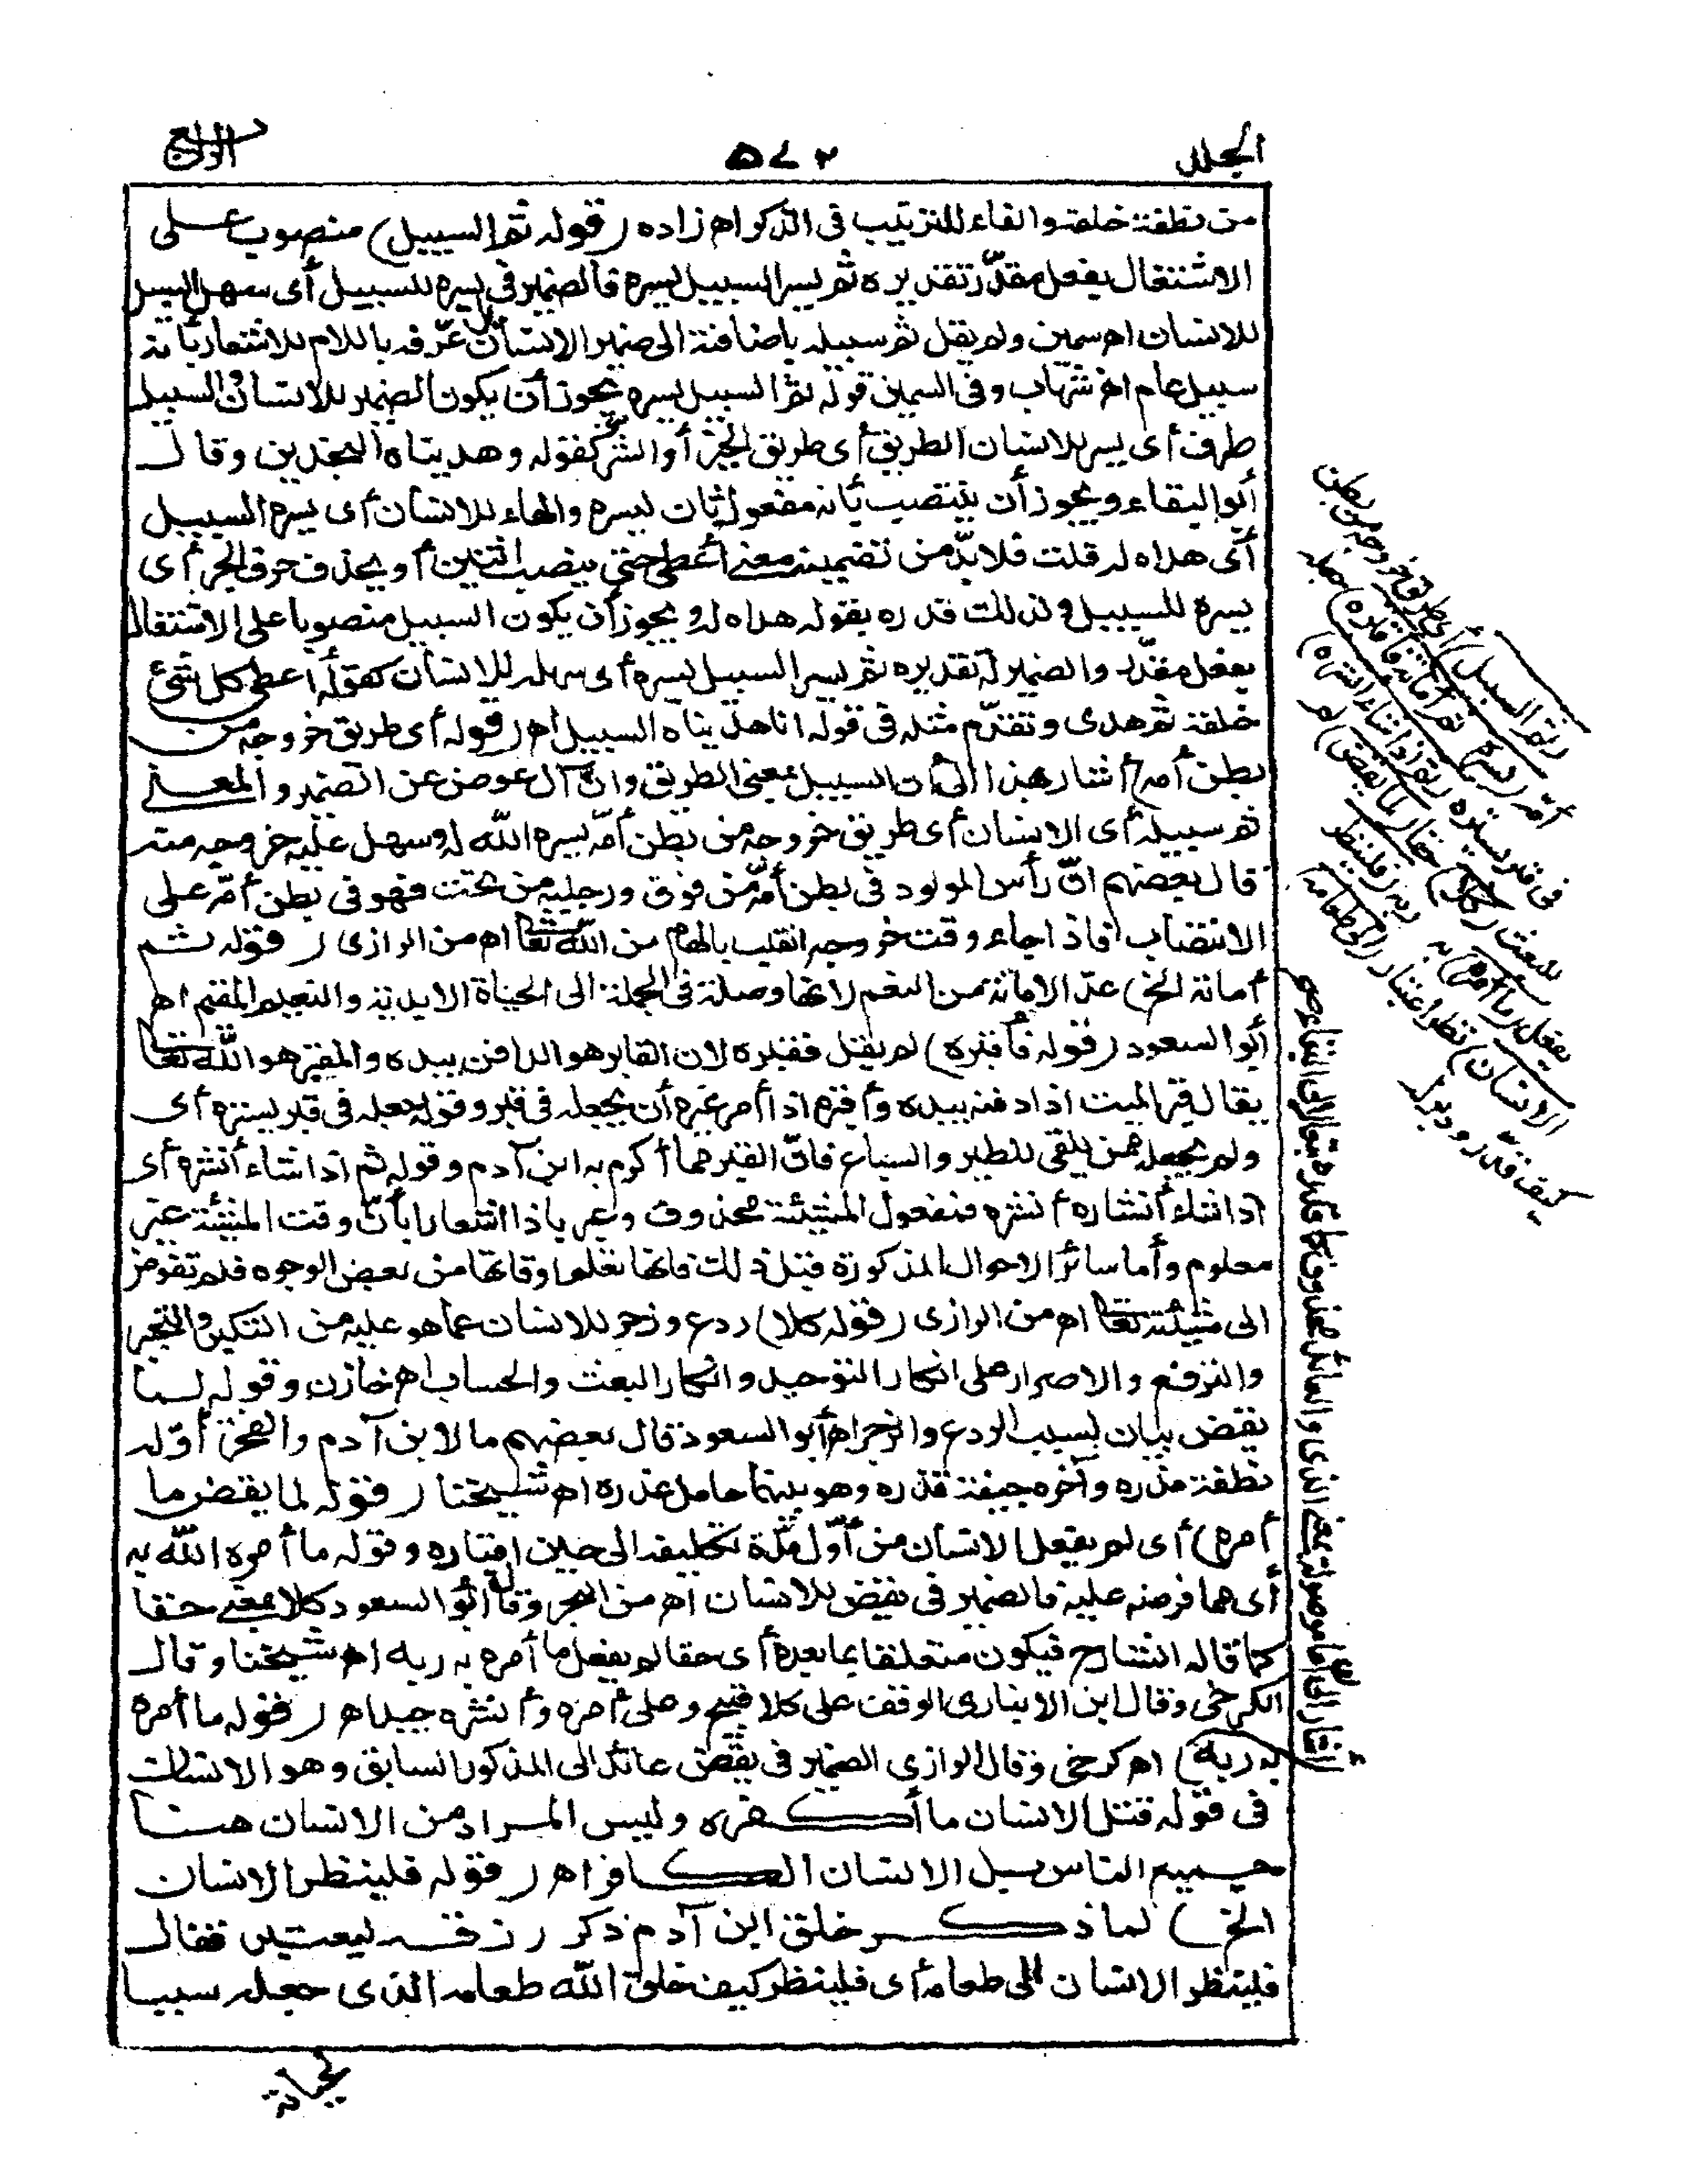 الجلد
٥٧٢
الرابع
من نطفة خلقه والفاء للترتيب في الذكر اه زاده (قوله ثم السبيل) منصوب على
الاشتغال بفعل مقدّر تقديره ثم يسر السبيل يسره فالضمير في يسره للسبيل أى سهل السبيل
للانسان اه سمين ولم يقل ثم سبيله باضافته الى ضمير الانسان بل عرّفه باللام للاشعار بأنه
سبيل عام اه شهاب وفى السمين قوله ثم السبيل يسره يجوز أن يكون الضمير للانسان والسبيل
ظرف أى يسر للانسان الطريق أى طريق الخير أو الشر كقوله وهديناه النجدين وقال
أبو البقاء ويجوز أن ينتصب بأنه مفعول ثان ليسره والهاء للانسان أى يسره السبيل
أى هداه له قلت فلا بدّ من تضمينه معنى أعطى حتى ينصب اثنين أو يحذف حرف الجر أى
يسره للسبيل ولذلك قدره بقوله هداه له ويجوز أن يكون السبيل منصوبا على الاشتغال
بفعل مقدّر والضمير له تقديره ثم يسر السبيل يسره أى سهله للانسان كقوله أعطى كل شئ
خلقه ثم هدى وتقدّم مثله فى قوله انا هديناه السبيل اه (قوله أى طريق خروجه من
بطن أمه) أشار بهذا الى أن السبيل بمعنى الطريق وان أل عوض عن الضمير والمعنى
ثم سبيله أى الانسان أى طريق خروجه من بطن أمّه يسره الله له وسهل عليه خروجه منه
قال بعضهم انّ رأس المولود فى بطن أمّه من فوق ورجليه من تحت فهو فى بطن أمّه على
الانتصاب فاذا جاء وقت خروجه انقلب بالهام من الله تعالى اه من الرازى (قوله ثم
أماته الخ) عدّ الاماتة من النعم لانها وصلة فى الجملة الى الحياة الابدية والنعيم المقيم اه
أبو السعود (قوله فأقبره) لم يقل فقبره لان القابر هو الدافن بيده والمقبر هو الله تعالى
يقال قبر الميت اذا دفنه بيده وأقبره اذا أمر غيره أن يجعله فى قبر وقوله جعله فى قبر يستره أى
ولم يجعله ممن يلقى للطير والسباع فانّ القبر مما أكرم به ابن آدم وقوله ثم اذا شاء أنشره أى
اذا شاء انشاره أنشره فمفعول المشيئة محذوف وعبر باذا اشعارا بأنّ وقت المشيئة غير
معلوم وأما سائر الاحوال المذكورة قبل ذلك فانها تعلم أوقاتها من بعض الوجوه فلم تفوض
الى مشيئته تعالى اه من الرازى (قوله كلا) ردع وزجر للانسان عما هو عليه من التكبر والتجبر
والترفع والاصرار على انكار التوحيد وانكار البعث والحساب اه خازن وقوله لما
يقض بيان لسبب الردع والزجر اه أبو السعود قال بعضهم ما لابن آدم والفخر أوّله
نطفة مذره وآخره جيفة قذره وهو بينهما حامل عذره اه شيخنا (قوله لما يقض ما
أمره) أى لم يفعل الانسان من أوّل مدّة تكليفه الى حين اقباره وقوله ما أمره الله به
أى مما فرضه عليه فالضمير فى يقض للانسان اه من البحر وقال أبو السعود كلا بمعنى حقا
كما قاله الشارح فيكون متعلقا بما بعده أى حقا لم يفعل ما أمره به ربه اه شيخنا وقال
الكرخى وقال ابن الانبارى الوقف على كلا قبيح وعلى أمره وأنشره جيد اه (قوله ما أمره
به ربه) اه كرخى وقال الرازى الضمير فى يقض عائد الى المذكور السابق وهو الانسان
فى قوله قتل الانسان ما أكفره وليس المراد من الانسان هنا
جميع الناس بل الانسان الكافر اه (قوله فلينظر الانسان
الخ) لما ذكر خلق ابن آدم ذكر رزقه ليعتبر فقال
فلينظر الانسان الى طعامه أى فلينظر كيف خلق الله طعامه الذى جعله سببا
لحياته
(ثم السبيل) أى طريق خروجه من بطن
أمّه (يسره ثم أماته فأقبره) جعله
فى قبر يستره (ثم اذا شاء أنشره)
للبعث (كلا) حقا (لما يقض) لم
يفعل (ما أمره) به ربه (فلينظر
الانسان) نظر اعتبار (الى طعامه)
كيف قدّر ودبر له
أشار الى أن ما موصولة بمعنى الذى والعائد محذوف